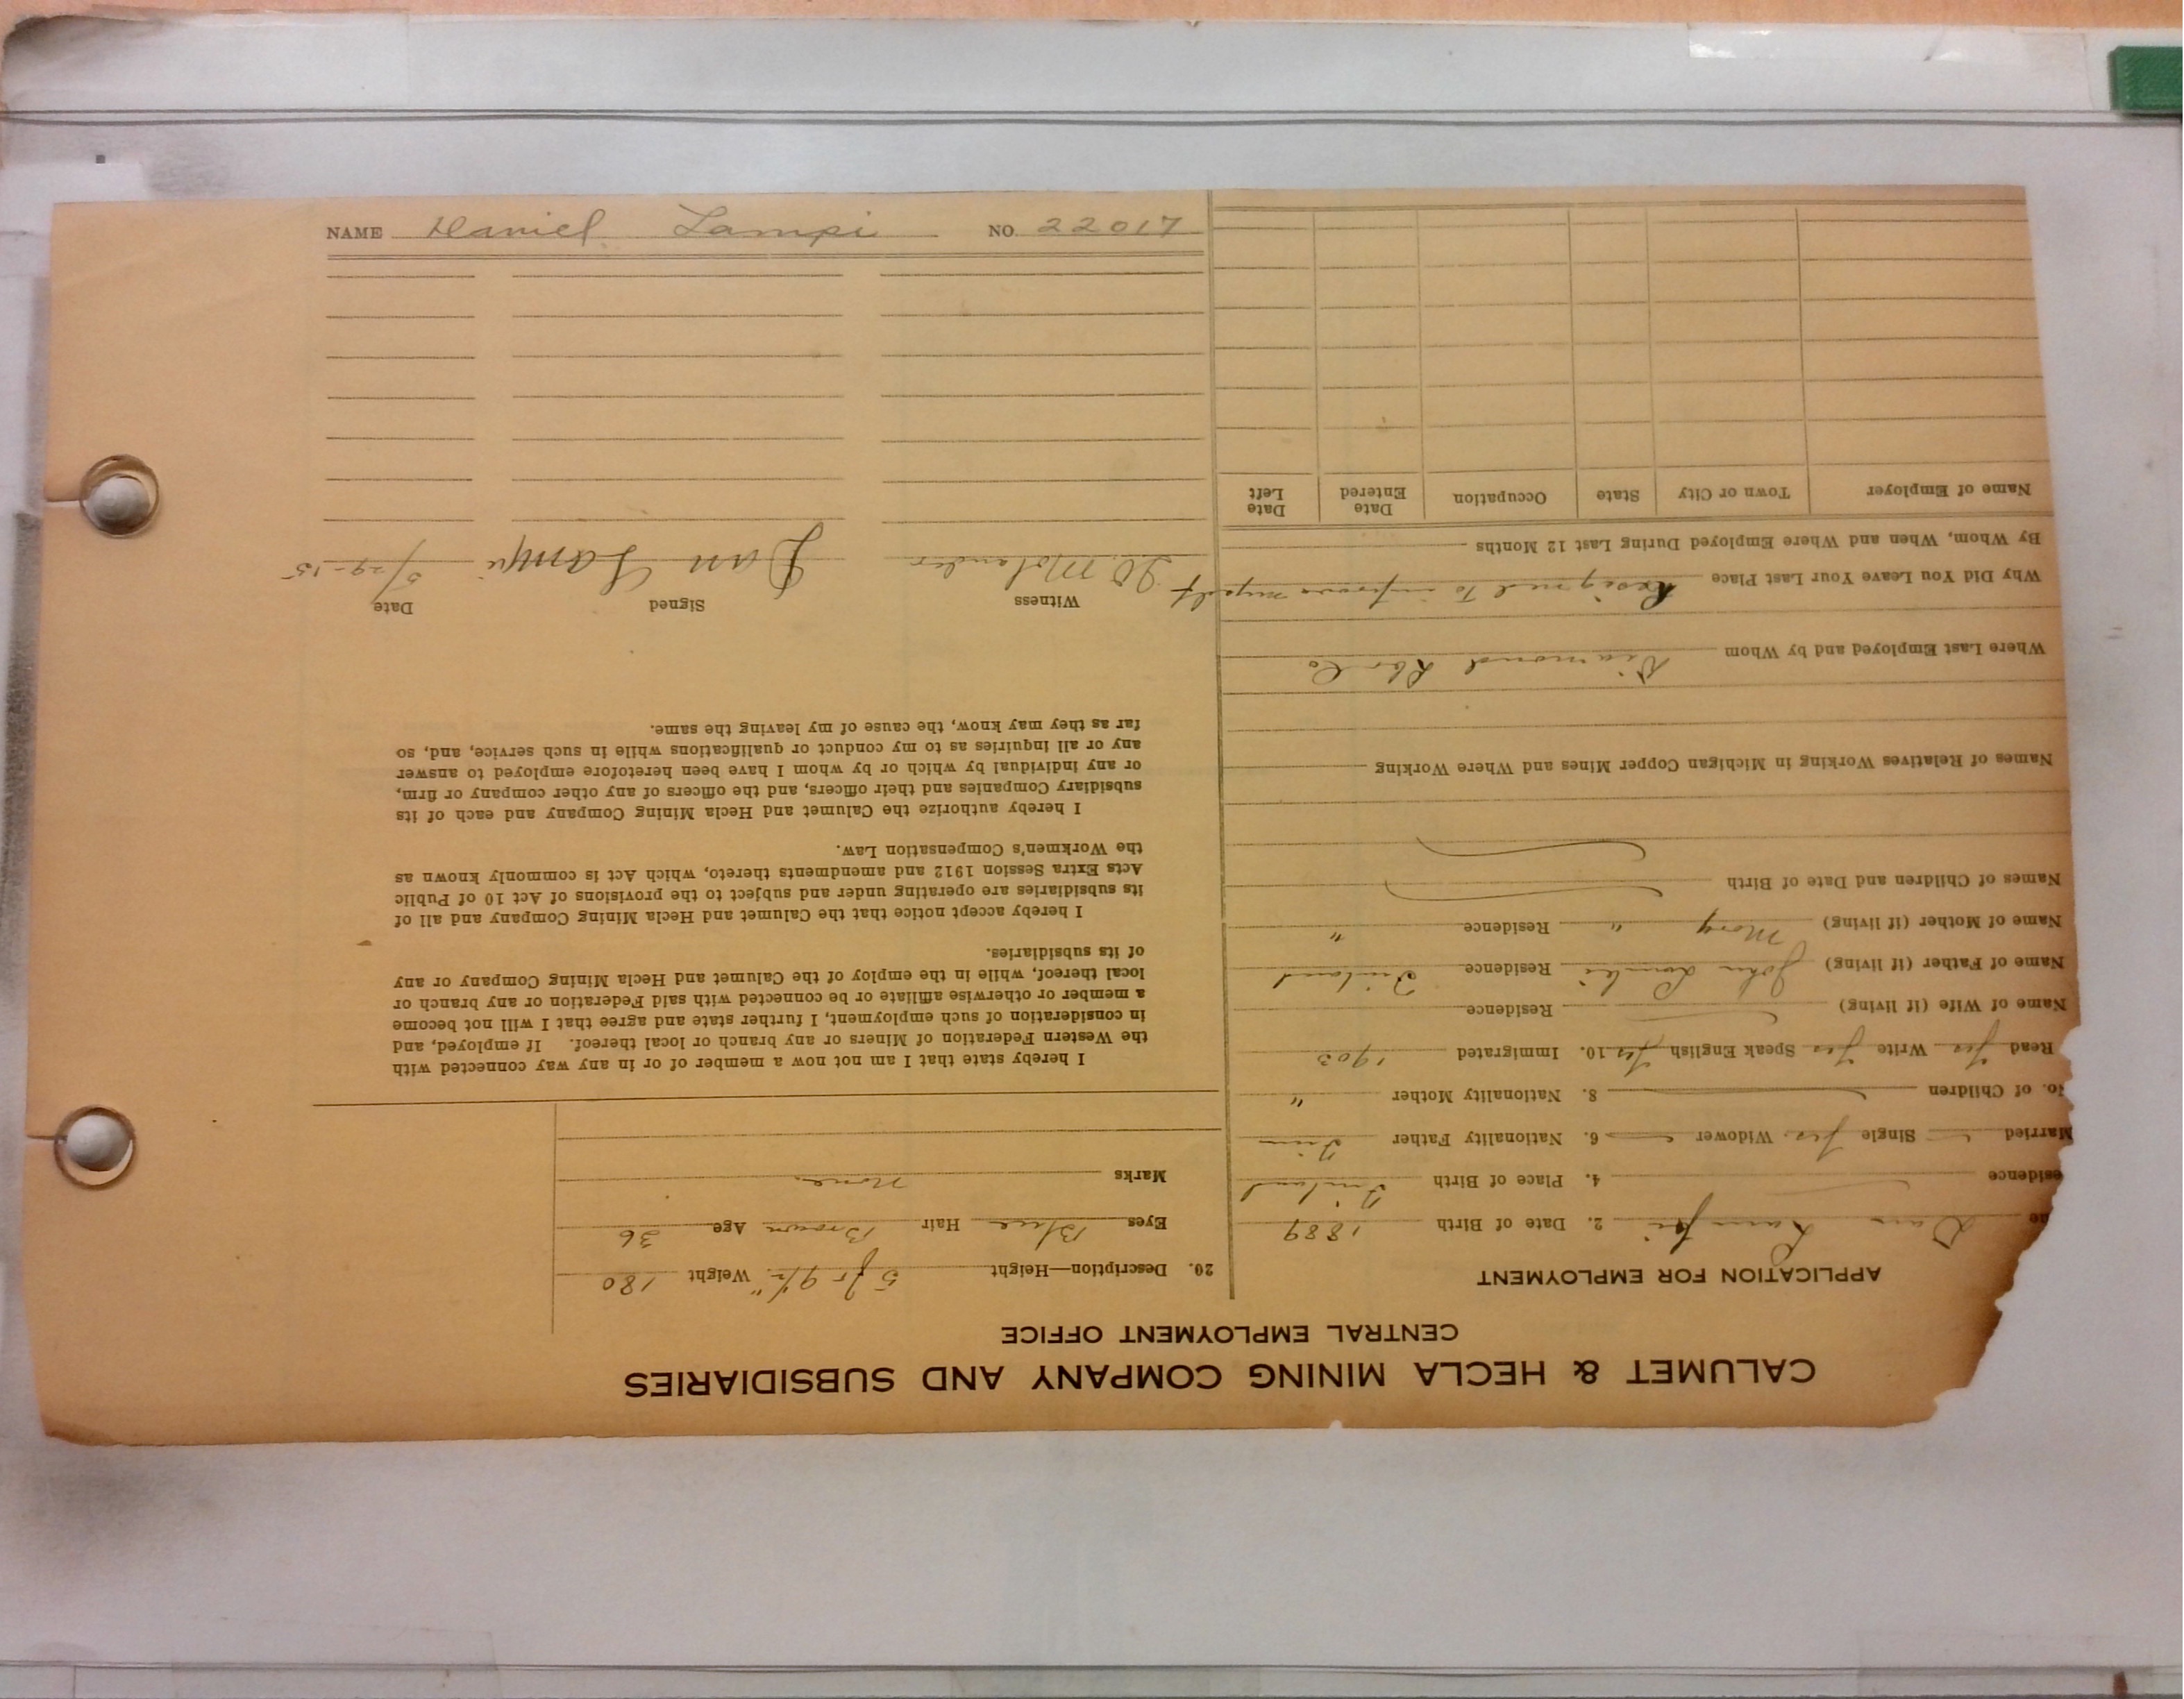 CALUMET & HECLA MINING COMPANY AND SUBSIDIARIES
CENTRAL EMPLOYMENT OFFICE
APPLICATION FOR EMPLOYMENT
me Dan Lampi 2. Date of Birth 1889
esidence 4. Place of Birth Finland
Married Single Yes Widower 6. Nationality Father Finn
No. of Children 8. Nationality Mother "
Read Yes Write Yes Speak English Yes 10. Immigrated 1903
Name of Wife (if living) Residence
Name of Father (if living) John Lampi Residence Finland
Name of Mother (if living) Mary " Residence "
Names of Children and Date of Birth
Names of Relatives Working in Michigan Copper Mines and Where Working
Where Last Employed and by Whom Diamond Lbr Co
Why Did You Leave Your Last Place Resigned To improve myself
By Whom, When and Where Employed During Last 12 Months
Name of Employer Town or City State Occupation Date Entered Date Left
20. Description—Height 5 ft 9½" Weight 180
Eyes Blue Hair Brown Age 36
Marks None
I hereby state that I am not now a member of or in any way connected with
the Western Federation of Miners or any branch or local thereof. If employed, and
in consideration of such employment, I further state and agree that I will not become
a member or otherwise affiliate or be connected with said Federation or any branch or
local thereof, while in the employ of the Calumet and Hecla Mining Company or any
of its subsidiaries.
I hereby accept notice that the Calumet and Hecla Mining Company and all of
its subsidiaries are operating under and subject to the provisions of Act 10 of Public
Acts Extra Session 1912 and amendments thereto, which Act is commonly known as
the Workmen's Compensation Law.
I hereby authorize the Calumet and Hecla Mining Company and each of its
subsidiary Companies and their officers, and the officers of any other company or firm,
or any individual by which or by whom I have been heretofore employed to answer
any or all inquiries as to my conduct or qualifications while in such service, and, so
far as they may know, the cause of my leaving the same.
Witness Signed Date
Molander Dan Lampi 5/29-15
NAME Daniel Lampi NO. 22017